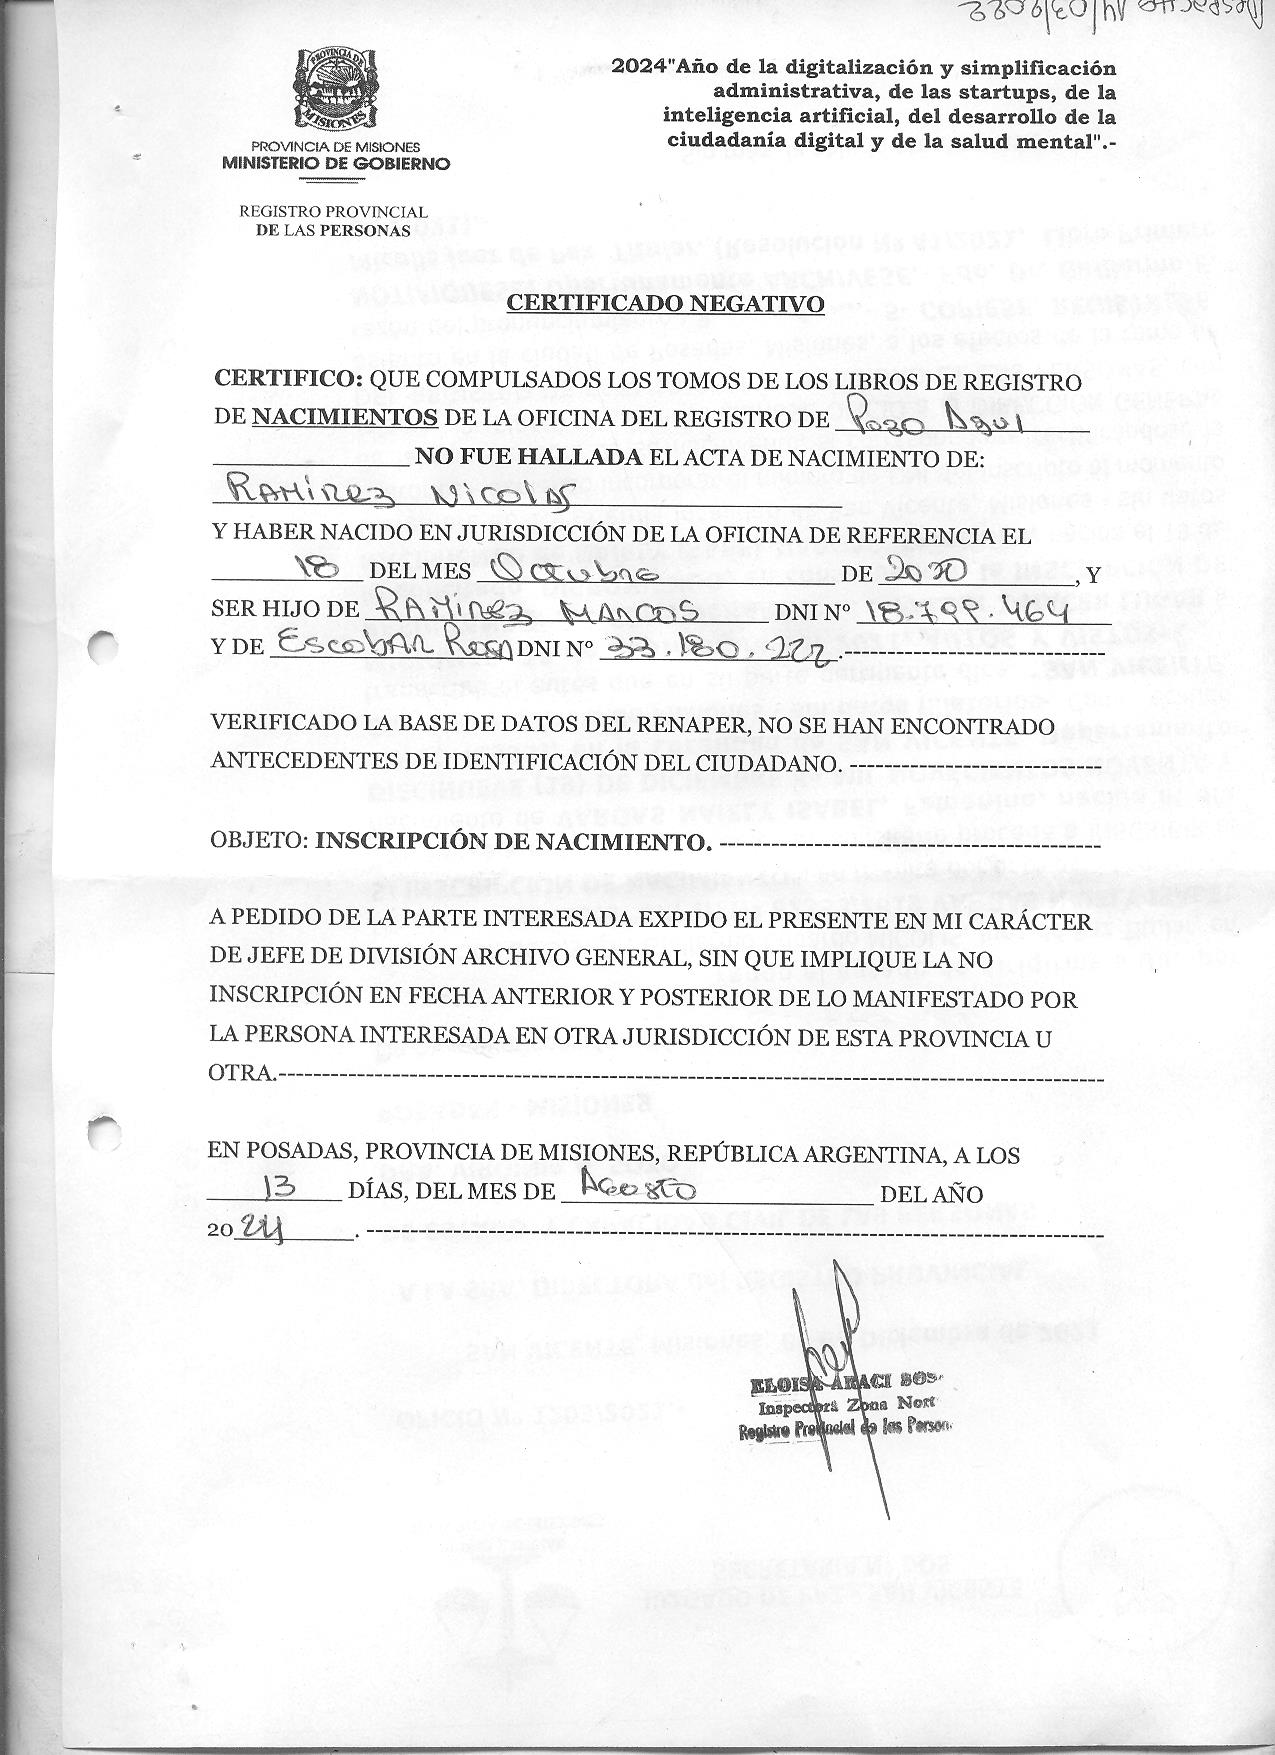 PROVINCIA DE
MISIONES
PROVINCIA DE MISIONES
MINISTERIO DE GOBIERNO
REGISTRO PROVINCIAL
DE LAS PERSONAS
2024"Año de la digitalización y simplificación
administrativa, de las startups, de la
inteligencia artificial, del desarrollo de la
ciudadanía digital y de la salud mental".-
CERTIFICADO NEGATIVO
CERTIFICO: QUE COMPULSADOS LOS TOMOS DE LOS LIBROS DE REGISTRO
DE NACIMIENTOS DE LA OFICINA DEL REGISTRO DE Pozo Azul
NO FUE HALLADA EL ACTA DE NACIMIENTO DE:
RAMIREZ NICOLAS
Y HABER NACIDO EN JURISDICCIÓN DE LA OFICINA DE REFERENCIA EL
18 DEL MES Octubre DE 2010, Y
SER HIJO DE RAMIREZ MARCOS DNI Nº 18.799.464
Y DE ESCOBAR ROSA DNI Nº 33.180.227.------------------------------
VERIFICADO LA BASE DE DATOS DEL RENAPER, NO SE HAN ENCONTRADO
ANTECEDENTES DE IDENTIFICACIÓN DEL CIUDADANO. -----------------------------
OBJETO: INSCRIPCIÓN DE NACIMIENTO. --------------------------------------------
A PEDIDO DE LA PARTE INTERESADA EXPIDO EL PRESENTE EN MI CARÁCTER
DE JEFE DE DIVISIÓN ARCHIVO GENERAL, SIN QUE IMPLIQUE LA NO
INSCRIPCIÓN EN FECHA ANTERIOR Y POSTERIOR DE LO MANIFESTADO POR
LA PERSONA INTERESADA EN OTRA JURISDICCIÓN DE ESTA PROVINCIA U
OTRA.------------------------------------------------------------------------------------------------
EN POSADAS, PROVINCIA DE MISIONES, REPÚBLICA ARGENTINA, A LOS
13 DÍAS, DEL MES DE Agosto DEL AÑO
2024. -------------------------------------------------------------------------------------
ELOISA ARACI SOS
Inspectora Zona Nort
Registro Provincial de las Person